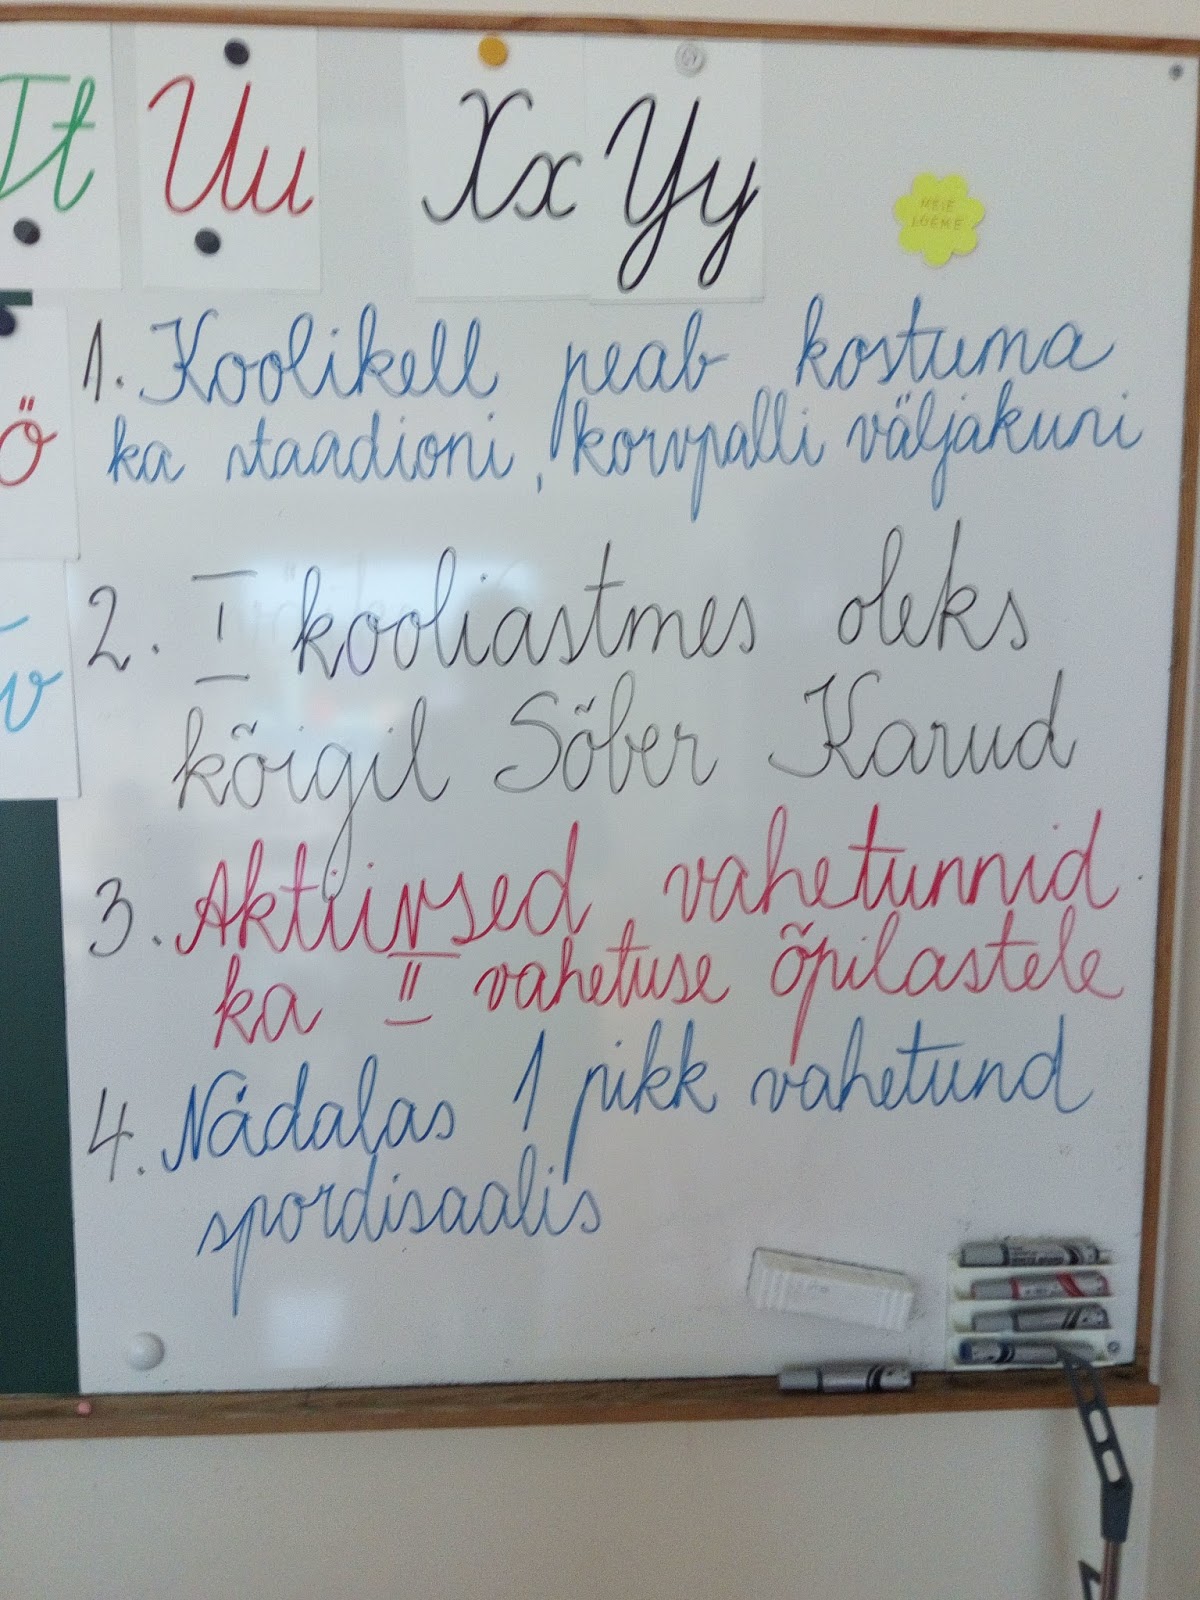 Tt
Uu
Xx Yy
MEIE
LOEME
Ö
v
1. Koolikell peab kostuma
ka staadioni, korvpalli väljakuni
2. I kooliastmes oleks
kõigil Sõber Karud
3. Aktiivsed vahetunnid
ka II vahetuse õpilastele
4. Nädalas 1 pikk vahetund
spordisaalis